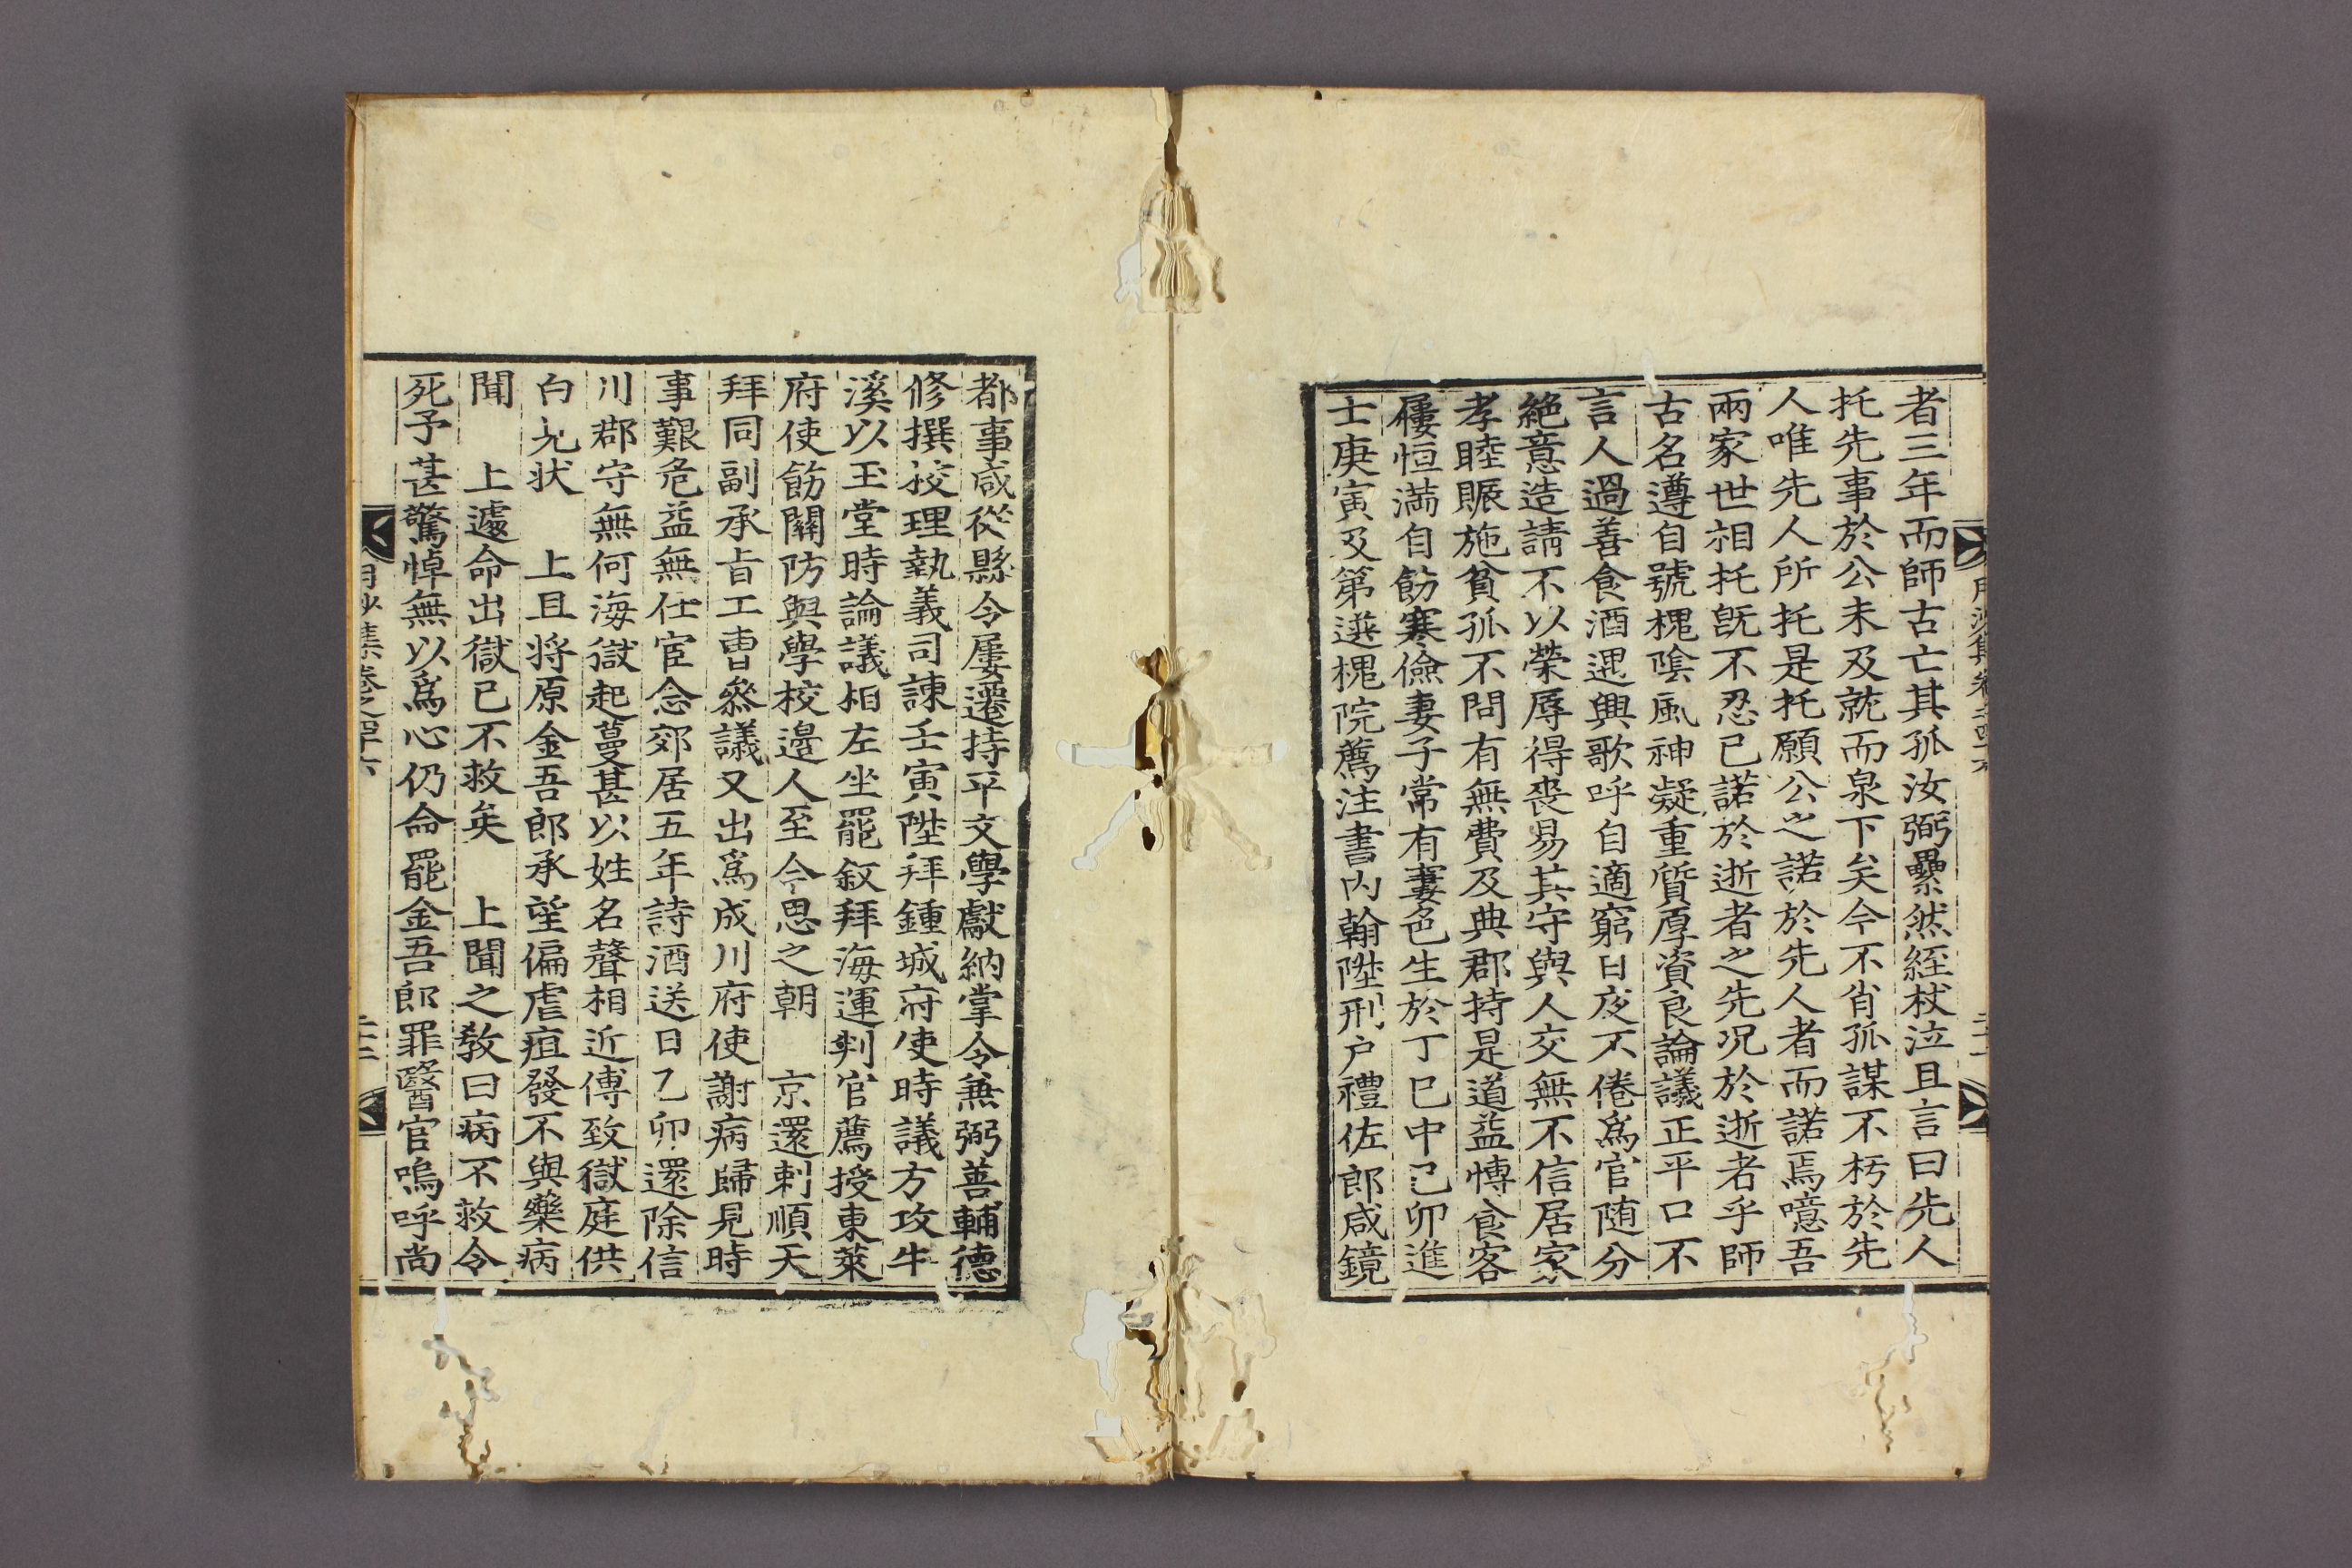 者三年而師古亡其孤汝弼纍然絰杖泣且言曰先人
托先事於公未及就而泉下矣今不肖孤謀不朽於先
人唯先人所托是托願公之諾於先人者而諾焉噫吾
兩家世相托旣不忍已諾於逝者之先况於逝者乎師
古名遵自號槐隂風神凝重質厚資良論議正平口不
言人過善食酒遇興歌呼自適窮日夜不倦爲官随分
絶意造請不以榮辱得喪易其守與人交無不信居家
孝睦賑施貧孤不問有無費及典郡持是道益慱食客
屨恒満自飭寒儉妻子常有寠色生於丁巳中己卯進
士庚寅及第選槐院薦注書内翰陞刑户禮佐郎咸鏡
都事咸從縣令屢遷持平文學獻納掌令兼弼善輔德
修撰校理執義司諫壬寅陞拜鍾城府使時議方攻牛
溪以玉堂時論議相左坐罷敍拜海運判官薦授東萊
府使飭關防興學校邊人至今思之朝　京還剌順天
拜同副承旨工曹叅議又出爲成川府使謝病歸見時
事艱危益無仕宦念郊居五年詩酒送日乙卯還除信
川郡守無何海獄起蔓甚以姓名聲相近傅致獄庭供
白允状　上且将原金吾郎承望偏虐疽發不與藥病
聞　上遽命出獄已不救矣　上聞之敎曰病不救令
死予甚驚悼無以爲心仍命罷金吾郎罪醫官嗚呼尚
月沙集卷之四十六